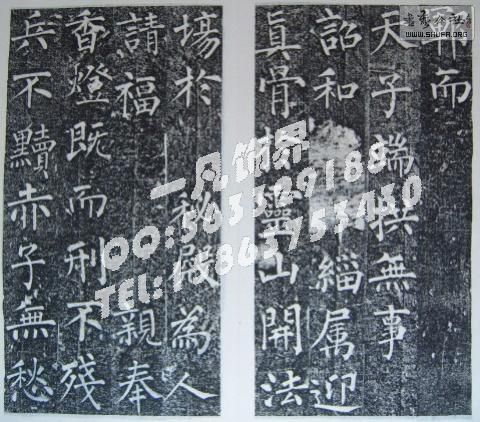 耶而
天子端拱無事
詔和緇属迎
真骨於靈山開法
場於秘殿為人
請福親奉
香燈既而刑不殘
兵不黷赤子無愁
一凡饰界
QQ:563329188
TEL:
WWW.SHUFA.ORG